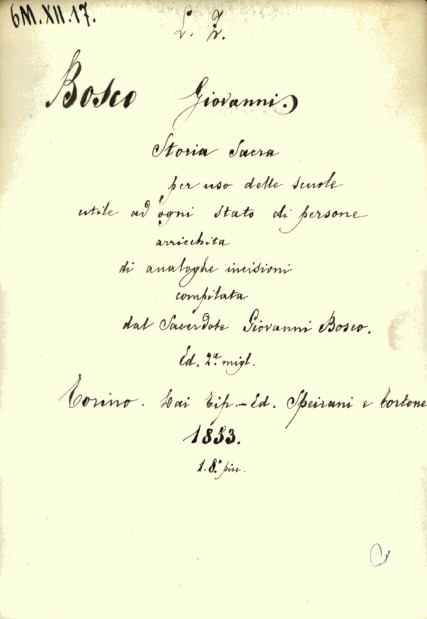 6M.XII.17.
L. Z.
Bosco Giovanni.
Storia Sacra
per uso delle scuole
utile ad ogni stato di persone
arricchita
di analoghe incisioni
compilata
dal Sacerdote Giovanni Bosco.
Ed. 2ª migl.
Torino. Dai Tip.-Ed. Speirani e Tortone
1853.
1. 8.° picc.